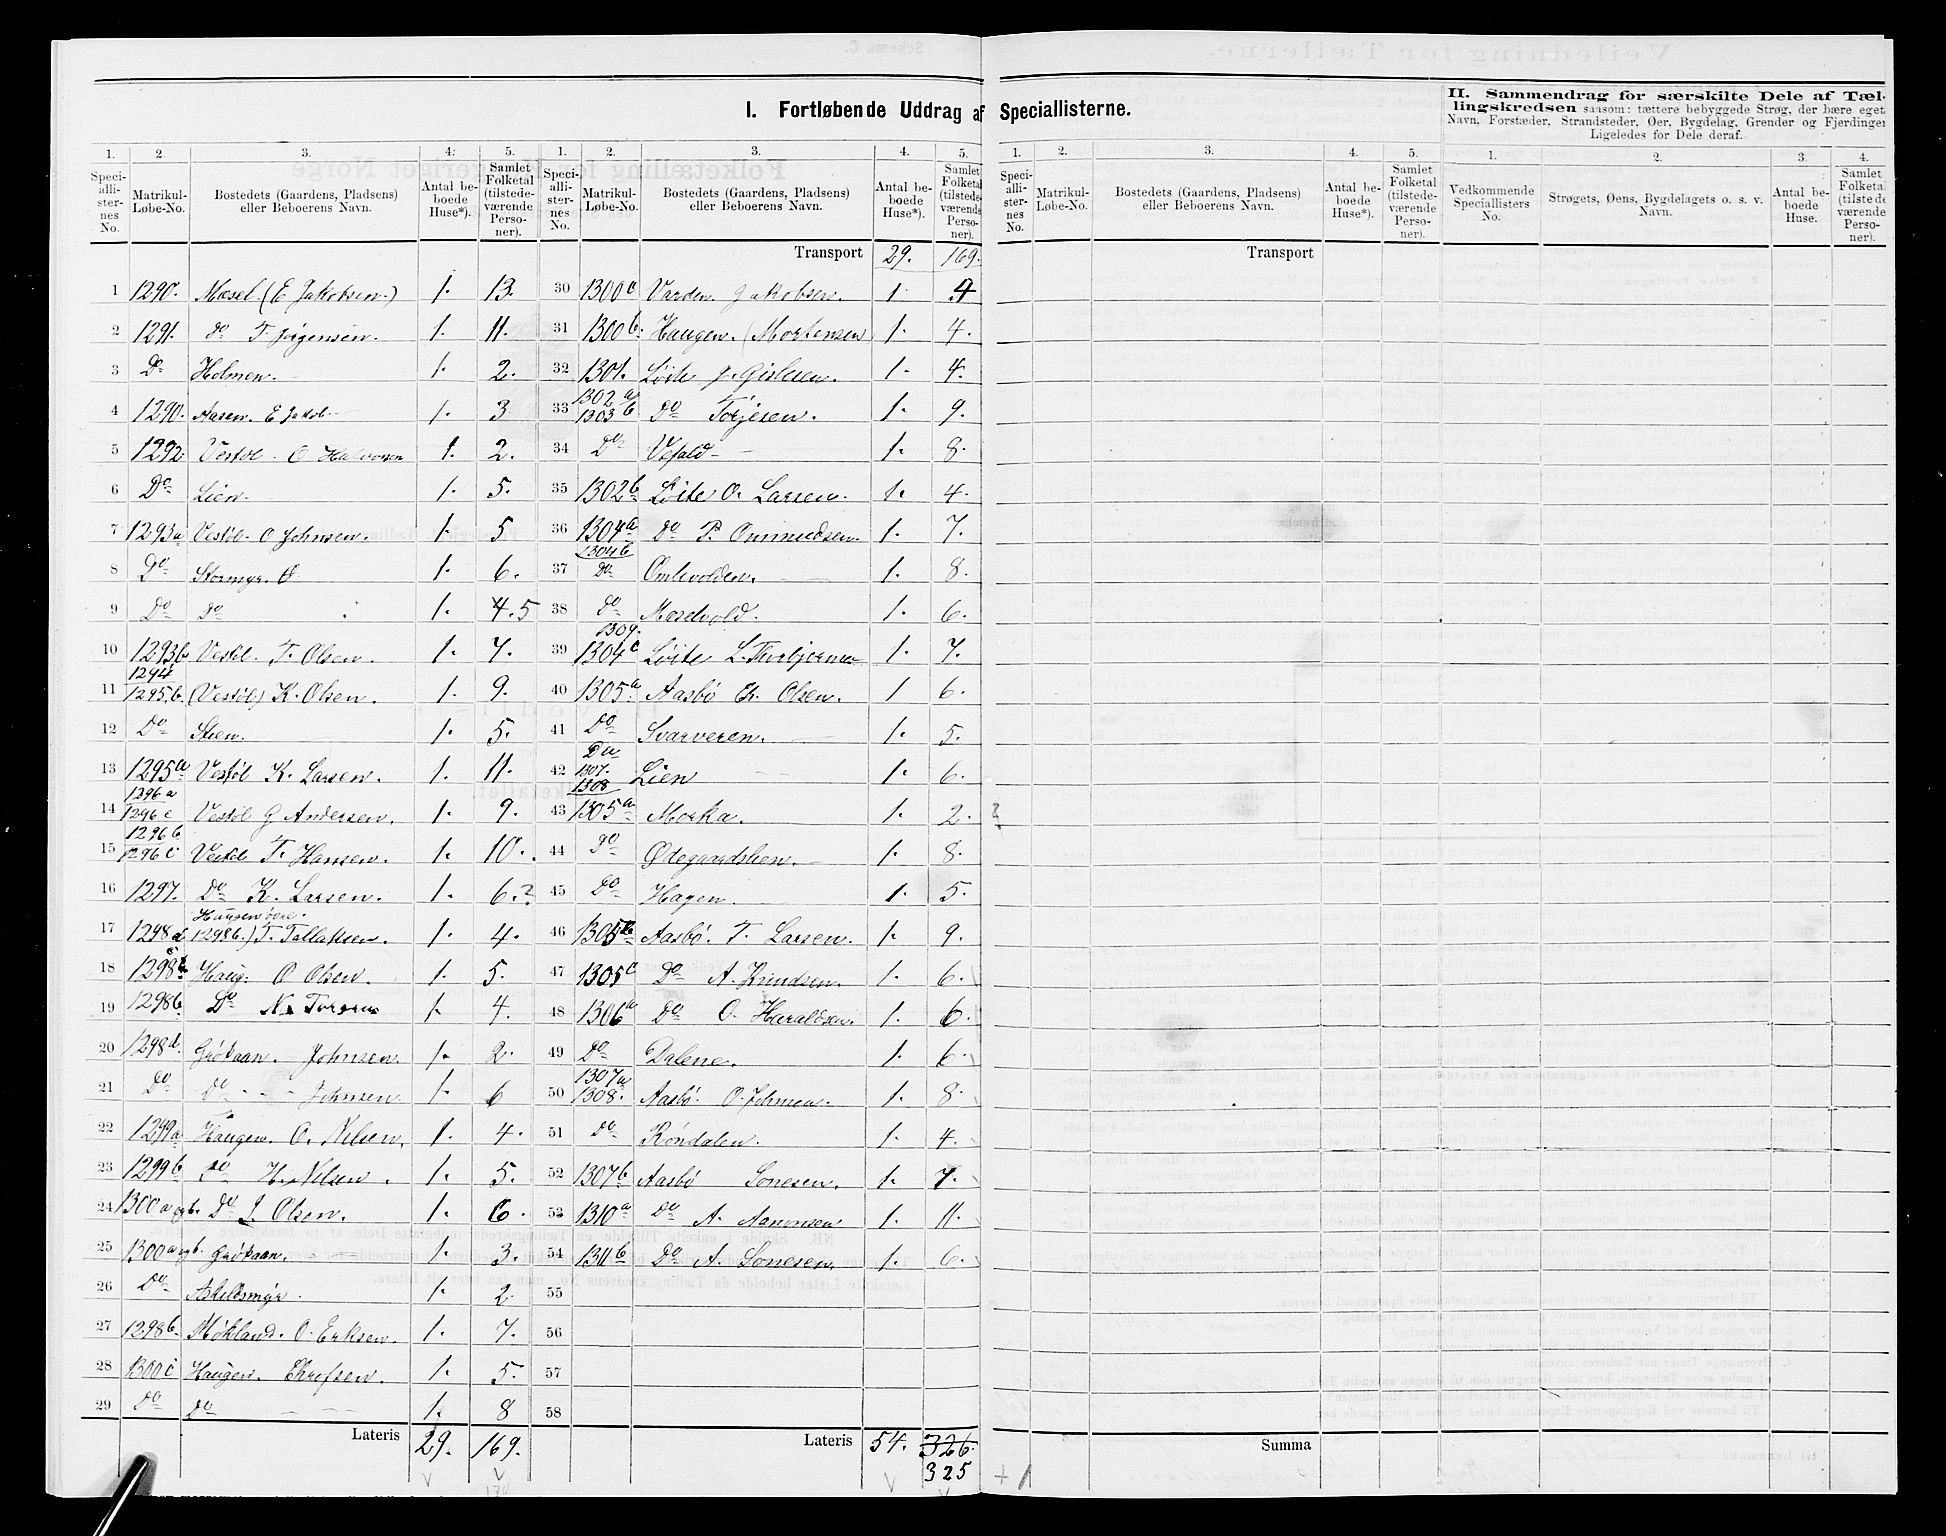 I. Fortløbende Uddrag af Speciallisterne.
II. Sammendrag for særskilte Dele af Tællingskredsen saasom: tættere bebyggede Strøg, der bære eget
Navn, Forstæder, Strandsteder, Øer, Bygdelag, Grender og Fjerdinger
Ligeledes for Dele deraf.
1. 2. 3. 4. 5. 1. 2. 3. 4. 5. 1. 2. 3. 4. 5. 1. 2. 3. 4.
Speciallisternes No. Matrikul-Løbe-No. Bostedets (Gaardens, Pladsens) eller Beboerens Navn. Antal beboede Huse*). Samlet Folketal (tilstedeværende Personer).
Speciallisternes No. Matrikul-Løbe-No. Bostedets (Gaardens, Pladsens) eller Beboerens Navn. Antal beboede Huse*). Samlet Folketal (tilstedeværende Personer).
Speciallisternes No. Matrikul-Løbe-No. Bostedets (Gaardens, Pladsens) eller Beboerens Navn. Antal beboede Huse*). Samlet Folketal (tilstedeværende Personer).
Vedkommende Speciallisters No. Strøgets, Øens, Bygdelagets o. s. v. Navn. Antal beboede Huse. Samlet Folketal (tilstedeværende Personer).
1 1290. Mæsel (E Jakobsen.) 1. 13.
2 1291. Do T Jørgensen. 1. 11.
3 Do Holmen. 1. 2.
4 1290. Aasen. E Jakob 1. 3
5 1292. Vestøl. O Halvorsen 1. 2.
6 Do Lien. 1. 5.
7 1293a Vestøl. O Johnsen. 1. 5
8 Do Stormyr. 1. 6.
9 Do Do 1. 4. 5
10 1293b Vestøl. T. Olsen. 1. 7.
11 1294 1295b. (Vestøl) K. Olsen. 1. 9.
12 Do Steen. 1. 5.
13 1295a Vestøl K. Larsen. 1. 11.
14 1296a 1296c Vestøl G Andersen. 1. 9.
15 1296b 1296c Vestøl T. Hansen. 1. 10.
16 1297. Do K. Larsen. 1. 6.?
17 1298a Haugen øvre. 1298b.) T. Tellaksen. 1. 4.
18 1298 Haug. O Olsen. 1. 5.
19 1298b. Do N. 1. 4.
20 1298d. Grökaan. Johnsen. 1. 2.
21 Do Do Johnsen 1. 6
22 1299a Haugen. O. Nilsen. 1. 4.
23 1299b Do H. Nilsen. 1. 5.
24 1300a ogb. Do J. Olsen. 1. 6.
25 1300a ogb. Grökaan. 1. 3.
26 Do Askildsmyr. 1. 2.
27 1298b. Møkland. O. Eriksen. 1. 7.
28 1300c Haugen. 1. 5.
29 Do Do 1. 8
Lateris 29. 169.
Transport 29. 169.
30 1300c Varden. Jakobsen. 1. 4
31 1300b. Haugen. (Mortensen 1. 4.
32 1301. Løite J. Gislesen. 1. 4.
33 1302a 1303b Do Torjesen. 1. 9.
34 Do 1. 8.
35 1302b Løite O. Larsen. 1. 4.
36 1304a Do P. Ommundsen. 1. 7.
37 1304b Do Omlevolden. 1. 8.
38 Do Mæselvold. 1. 6.
39 1309. 1304c Løite L. 1. 7.
40 1305a Aasbö Ch. Olsen. 1 6.
41 Do Svarveren. 1. 5.
42 Do 1307. 1308 Lien 1. 6.
43 1305a Morka. 1. 2.
44 Do Ødegaardslien. 1. 8.
45 Do Hagen. 1. 5.
46 1305b Aasbö. T. Larsen. 1. 9.
47 1305c Do A. Knudsen. 1. 6.
48 1306a Do O. Haraldsen. 1. 6.
49 Do Dalene. 1. 6.
50 1307a 1308. Aasbö. O. Johnsen. 1. 8.
51 Do Röndalen. 1. 4.
52 1307b Aasbö Sonesen. 1. 7.
53 1310a Do A. Aanonsen 1. 11.
54 1311b Do A. Sonesen. 1. 6.
55
56
57
58
Lateris 54. 326.
325
+ 1
Transport
Summa